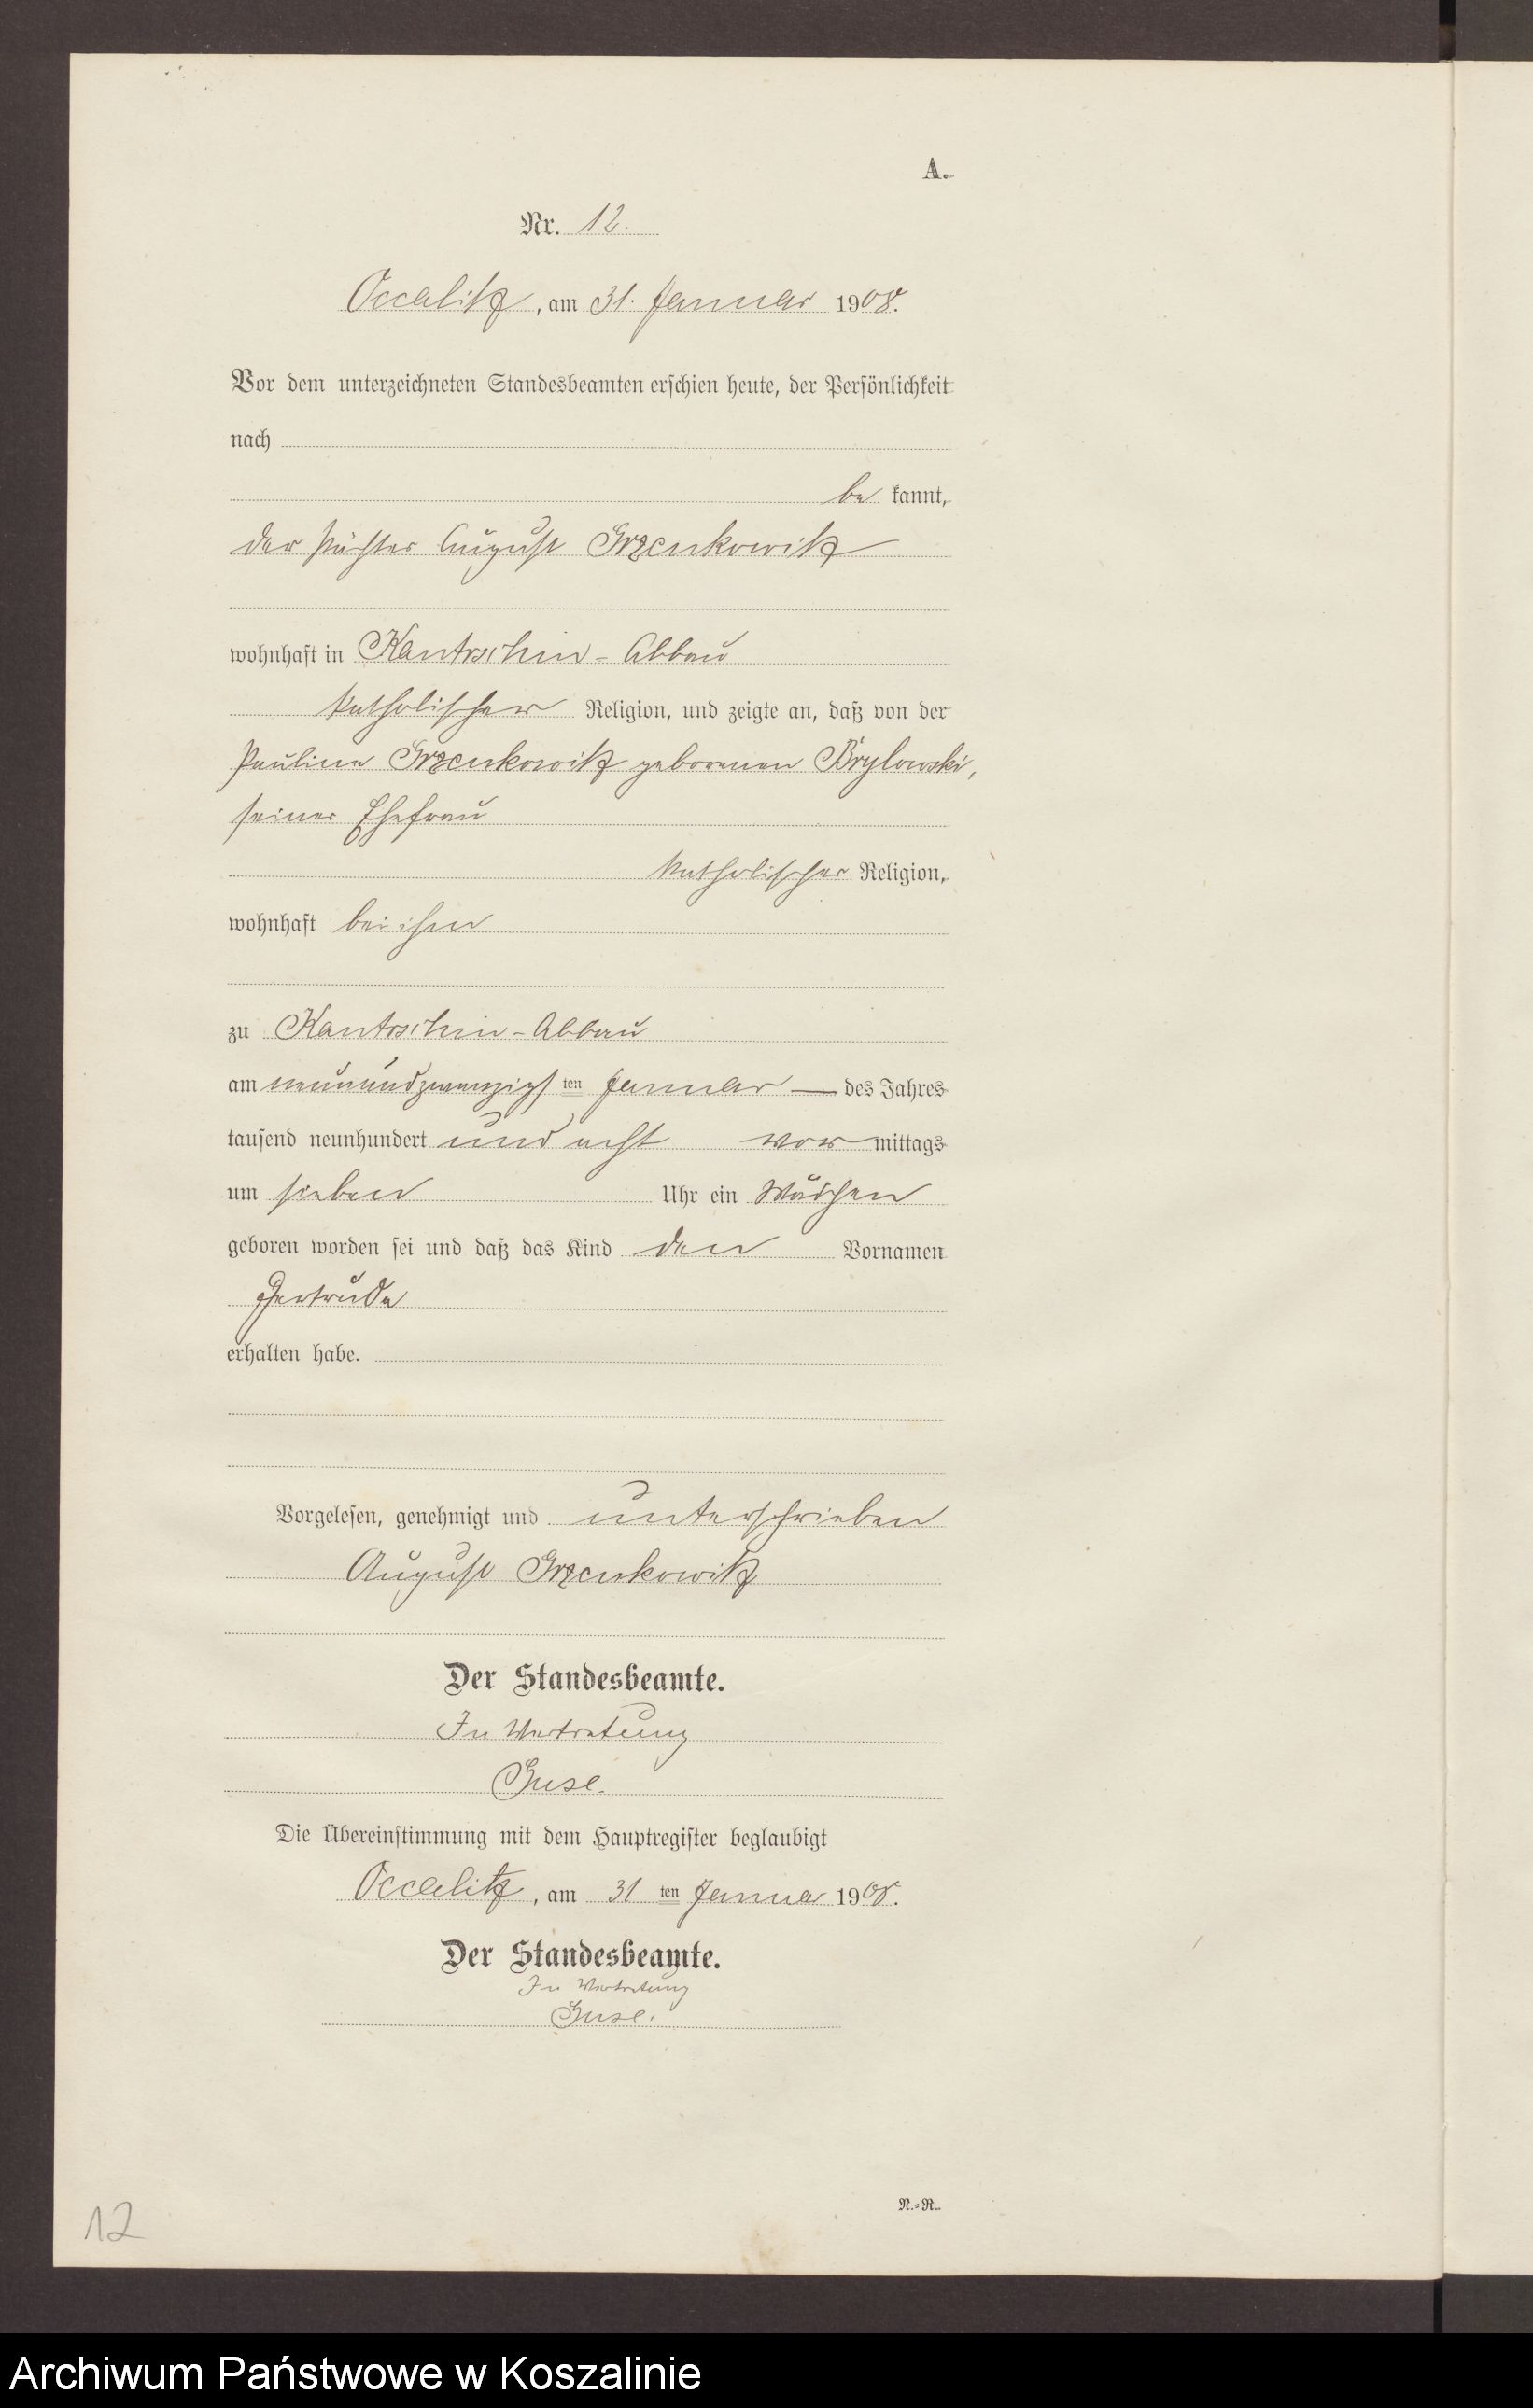 A.
Nr. 12.
Occalitz, am 31. Januar 1908.
Vor dem unterzeichneten Standesbeamten erschien heute, der Persönlichkeit
nach
be kannt,
der Pächter August Grzenkowitz
wohnhaft in Kantrschin-Abbau
katholischer Religion, und zeigte an, daß von der
Pauline Grzenkowitz geborenen Brylowski,
seiner Ehefrau
katholischer Religion,
wohnhaft bei ihm
zu Kantrschin-Abbau
am neunundzwanzigsten Januar — des Jahres
tausend neunhundert und acht vor mittags
um sieben Uhr ein Mädchen
geboren worden sei und daß das Kind den Vornamen
Gertrude
erhalten habe.
Vorgelesen, genehmigt und unterschrieben
August Grzenkowitz
Der Standesbeamte.
In Vertretung
Guse.
Die Übereinstimmung mit dem Hauptregister beglaubigt
Occalitz, am 31 ten Januar 1908.
Der Standesbeamte.
In Vertretung
Guse.
N.=R.
12
Archiwum Państwowe w Koszalinie